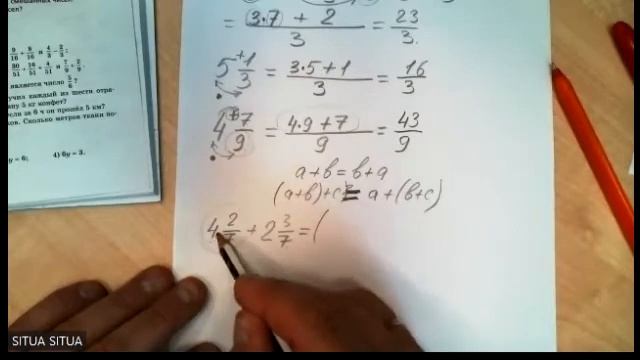 сен?
9/16 + 8/16 и 4/3 − 2/3;
30/51 + 16/51 и 4/51 + 7/9 + 2/9.
является число 5/6?
учил каждый из шести отра-
ну 5 кг конфет?
если за 6 ч он прошёл 5 км?
ков. Сколько метров ткани по-
y = 6; 4) 6y = 3.
= (3·7 + 2)/3 = 23/3.
5 1/3 = (3·5+1)/3 = 16/3
4 7/9 = (4·9+7)/9 = 43/9
a+b = b+a
(a+b)+c = a+(b+c)
4 2/7 + 2 3/7 = (
SITUA SITUA